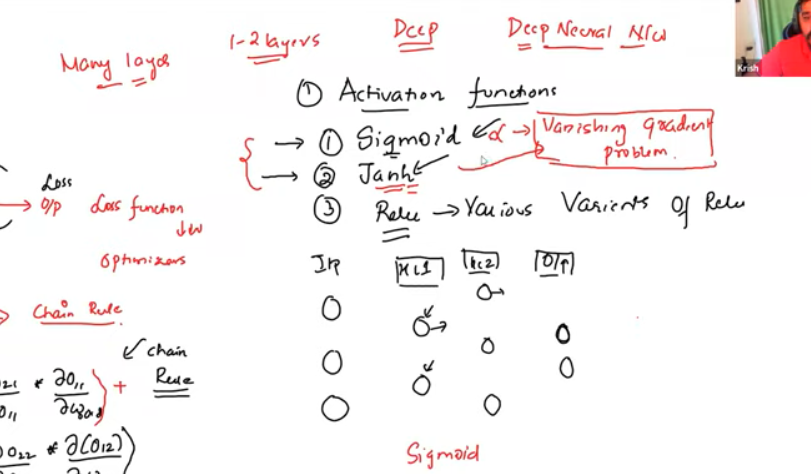 Many layer
1-2 layers
Deep
Deep Neural N/w
Krish
① Activation functions
→ ① Sigmoid
α → Vanishing gradient problem.
→ ② Tanh
③ Relu → Various Varients of Relu
Loss
→ O/p Loss function
Optimizers
Chain Rule.
chain
Rule
I/p
HL1
HL2
O/p
021 * ∂O₁₁
+
O₁₁
O₂₂ * ∂(O₁₂)
Sigmoid